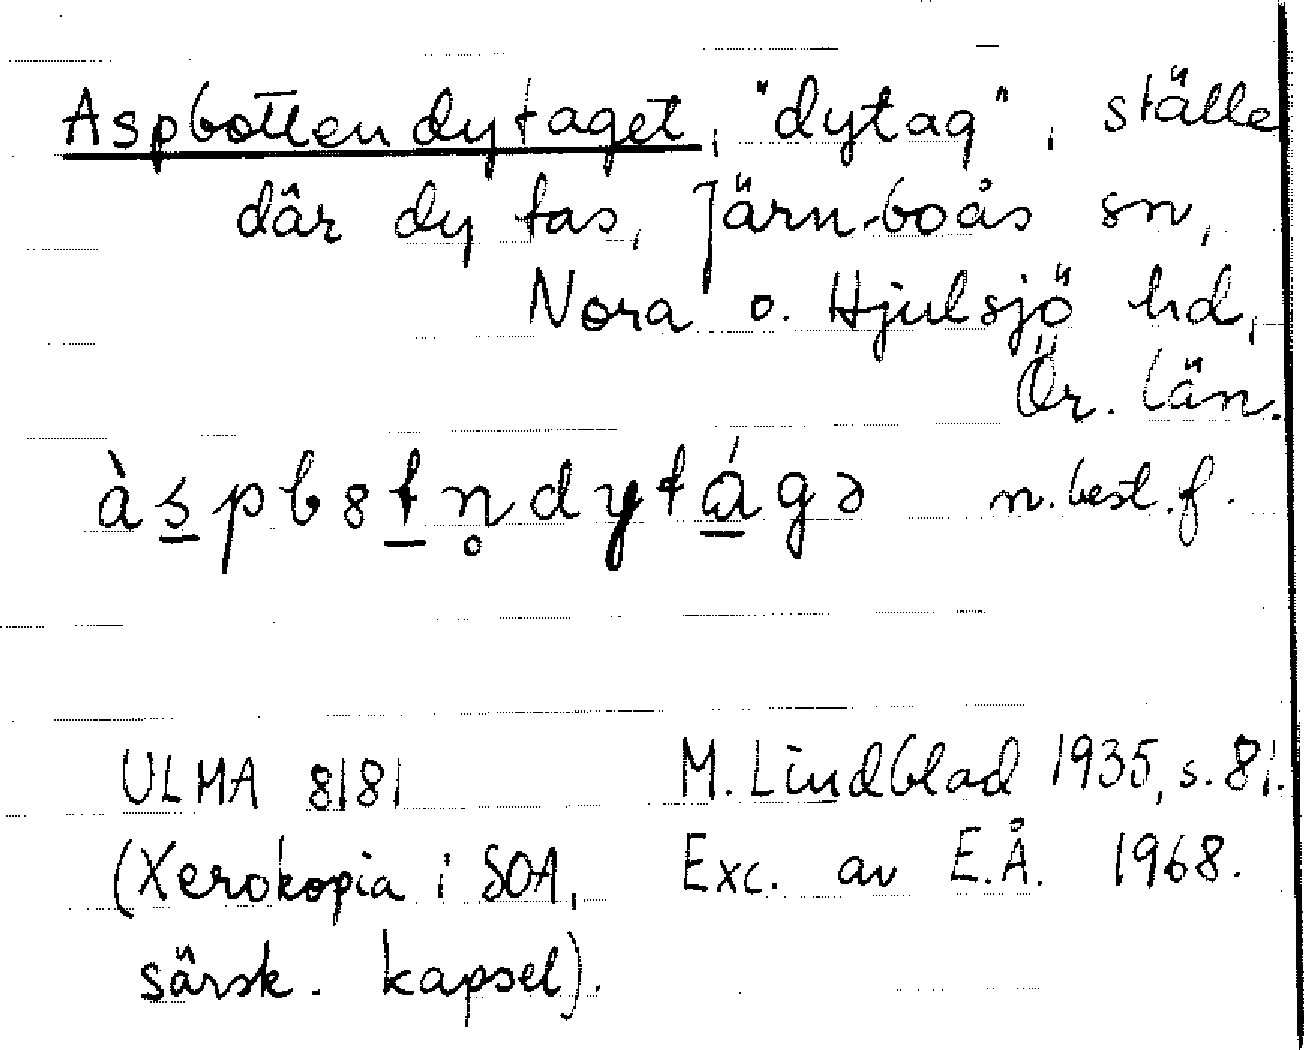 Aspbottendytaget, "dytag", ställe
där dy tas, Järnboås sn,
Nora o. Hjulsjö hd,
Ör. län.
às̠pb8t̠n̥dytá̠gə n. best. f.
ULMA 8181 M. Lindblad 1935, s. 81.
(Xerokopia i SOA, Exc. av E.Å. 1968.
särsk. kapsel).